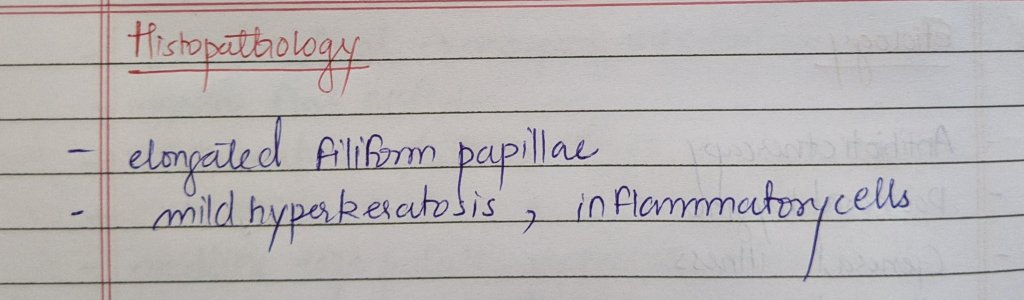 Histopathology
- elongated filiform papillae
- mild hyperkeratosis, inflammatory cells